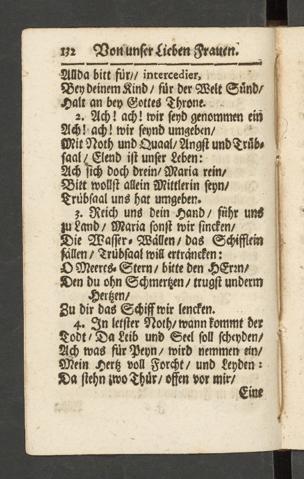 132 Von unser Lieben Frauen.
Allda bitt für/ intercedier,
Bey deinem Kind/ für der Welt Sünd/
Halt an bey Gottes Throne.
2. Ach! ach! wir seyd genommen ein
Ach! ach! wir seynd umgeben/
Mit Noth und Quaal/ Angst und Trüb-
saal/ Elend ist unser Leben:
Ach sich doch drein/ Maria rein/
Bitt wollst allein Mittlerin seyn/
Trübsaal uns hat umgeben.
3. Reich uns dein Hand/ führ uns
zu Land/ Maria sonst wir sincken/
Die Wasser-Wällen/ das Schifflein
fällen/ Trübsaal will ertråncken:
O Meers-Stern/ bitte den HErrn/
Den du ohn Schmertzen/ trugst underm
Hertzen/
Zu dir das Schiff wir lencken.
4. In letster Noth/ wann kommt der
Todt/ Da Leib und Seel soll scheyden/
Ach was für Peyn/ wird nemmen ein/
Mein Hertz voll Forcht/ und Leyden:
Da stehn zwo Thür/ offen vor mir/
Eine